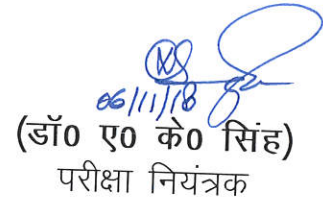 06/11/18
(डॉ0 ए0 के0 सिंह)
परीक्षा नियंत्रक